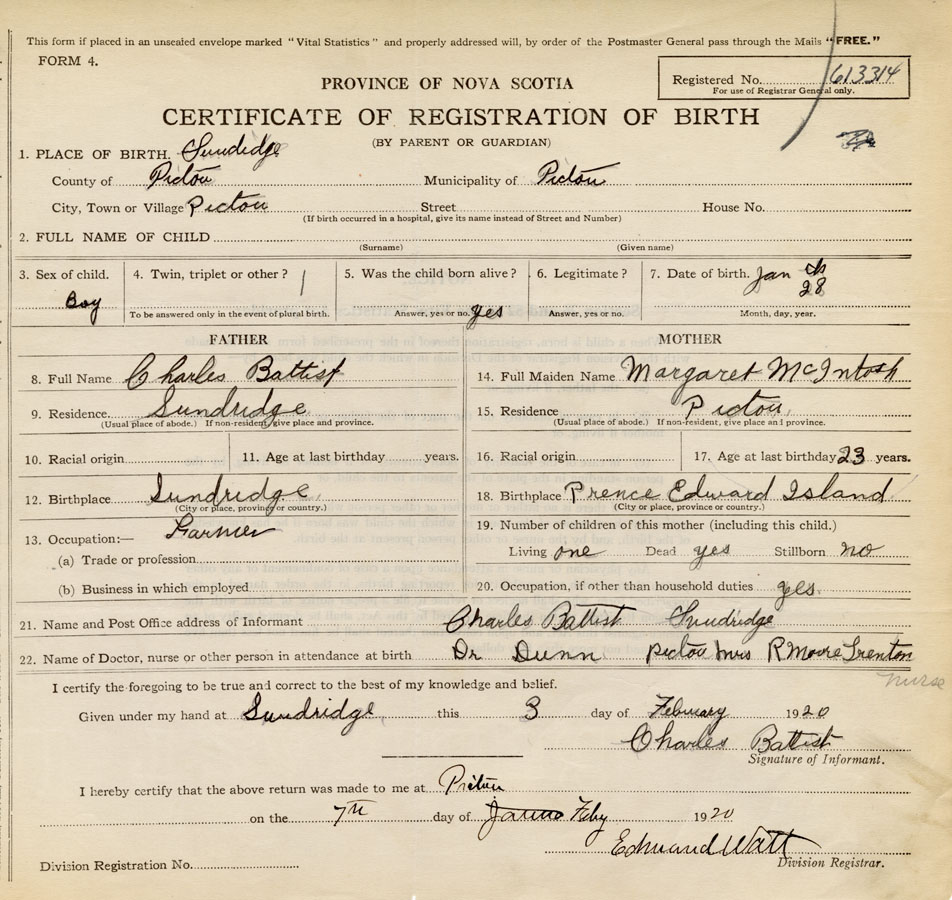 This form if placed in an unsealed envelope marked "Vital Statistics" and properly addressed will, by order of the Postmaster General pass through the Mails "FREE."
FORM 4.
PROVINCE OF NOVA SCOTIA
Registered No. 613314
For use of Registrar General only.
CERTIFICATE OF REGISTRATION OF BIRTH
(BY PARENT OR GUARDIAN)
1. PLACE OF BIRTH. Sundidge
County of Pictou Municipality of Pictou
City, Town or Village Pictou Street House No.
(If birth occurred in a hospital, give its name instead of Street and Number)
2. FULL NAME OF CHILD
(Surname) (Given name)
3. Sex of child. 4. Twin, triplet or other? 1 5. Was the child born alive? 6. Legitimate? 7. Date of birth. Jan
Boy 28
To be answered only in the event of plural birth. Answer, yes or no. yes Answer, yes or no. Month, day, year.
FATHER MOTHER
8. Full Name Charles Battist 14. Full Maiden Name Margaret McIntosh
9. Residence. Sundridge 15. Residence Pictou
(Usual place of abode.) If non-resident, give place and province. (Usual place of abode.) If non-resident, give place and province.
10. Racial origin 11. Age at last birthday years. 16. Racial origin 17. Age at last birthday 23 years.
12. Birthplace Sundridge 18. Birthplace Prence Edward Island
(City or place, province or country.) (City or place, province or country.)
13. Occupation:— Farmer 19. Number of children of this mother (including this child.)
(a) Trade or profession Living one Dead yes Stillborn no
(b) Business in which employed 20. Occupation, if other than household duties yes
21. Name and Post Office address of Informant Charles Battist Sundridge
22. Name of Doctor, nurse or other person in attendance at birth Dr Dunn Pictou Mrs R Moore Trenton
nurse
I certify the foregoing to be true and correct to the best of my knowledge and belief.
Given under my hand at Sundridge this 3 day of Februay 1920
Charles Battist
Signature of Informant.
I hereby certify that the above return was made to me at Pictou
on the 7th day of Feby 1920
Edmund Watt
Division Registration No. Division Registrar.